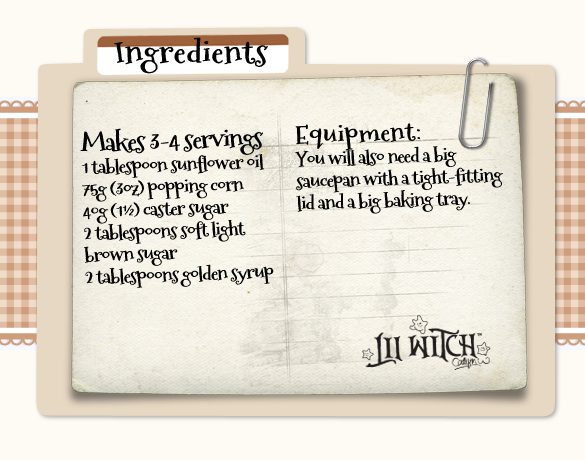 Ingredients
Makes 3-4 servings
1 tablespoon sunflower oil
75g (3oz) popping corn
40g (1½) caster sugar
2 tablespoons soft light
brown sugar
2 tablespoons golden syrup
Equipment:
You will also need a big
saucepan with a tight-fitting
lid and a big baking tray.
Lil WiTCH™